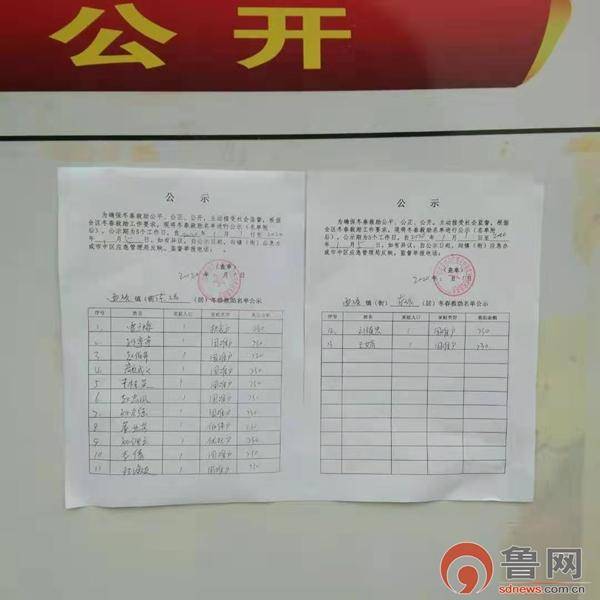 公开
公 示
为确保冬春救助公平、公正、公开，主动接受社会监督，根据
全区冬春救助工作要求，现将冬春救助名单进行公示（名单附
后），公示期为5个工作日，自2020年1月1日至2020
年1月5日，如有异议，自公示日起，向镇（街）应急办
或市中区应急管理局反映。监督举报电话：
（盖章）
2020年1月1日
镇（街） （居）冬春救助名单公示
序号 姓名 家庭人口 家庭类型 救助金额
1 1 250
2 1 困难户 250
3 1 困难户 250
4 1 困难户 250
5 1 困难户 250
6 1 困难户 250
7 1 困难户 250
8 1 低保户 250
9 1 250
10 1 困难户 250
11 1 困难户 250
公 示
为确保冬春救助公平、公正、公开，主动接受社会监督，根据
全区冬春救助工作要求，现将冬春救助名单进行公示（名单附
后），公示期为5个工作日，自2020年1月1日至2020
年1月5日，如有异议，自公示日起，向镇（街）应急办
或市中区应急管理局反映。监督举报电话：
（盖章）
2020年1月1日
镇（街） （居）冬春救助名单公示
序号 姓名 家庭人口 家庭类型 救助金额
12 1 困难户 250
13 1 困难户 250
鲁网
sdnews.com.cn